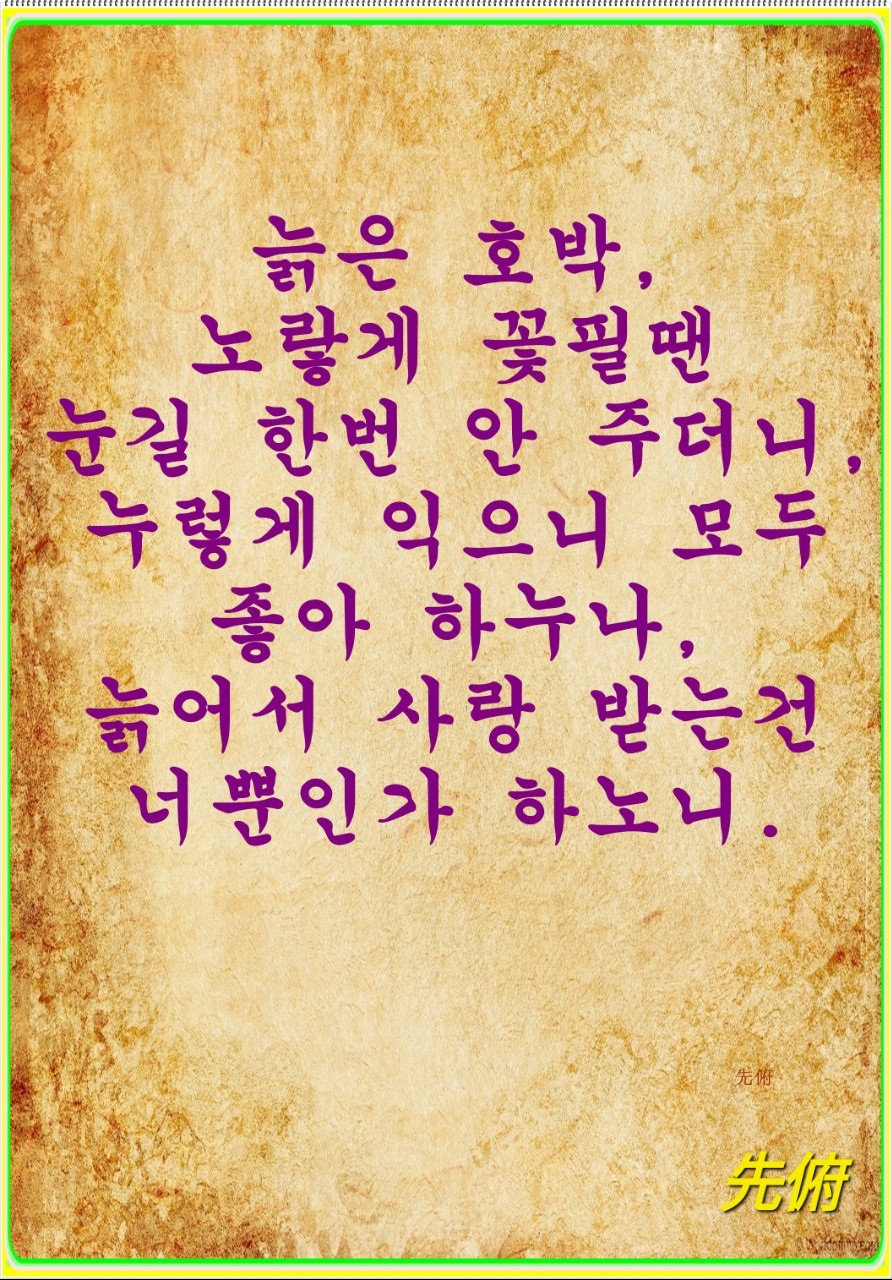 늙은 호박,
노랗게 꽃필땐
눈길 한번 안 주더니,
누렇게 익으니 모두
좋아 하누나,
늙어서 사랑 받는건
너뿐인가 하노니.
先俯
先俯